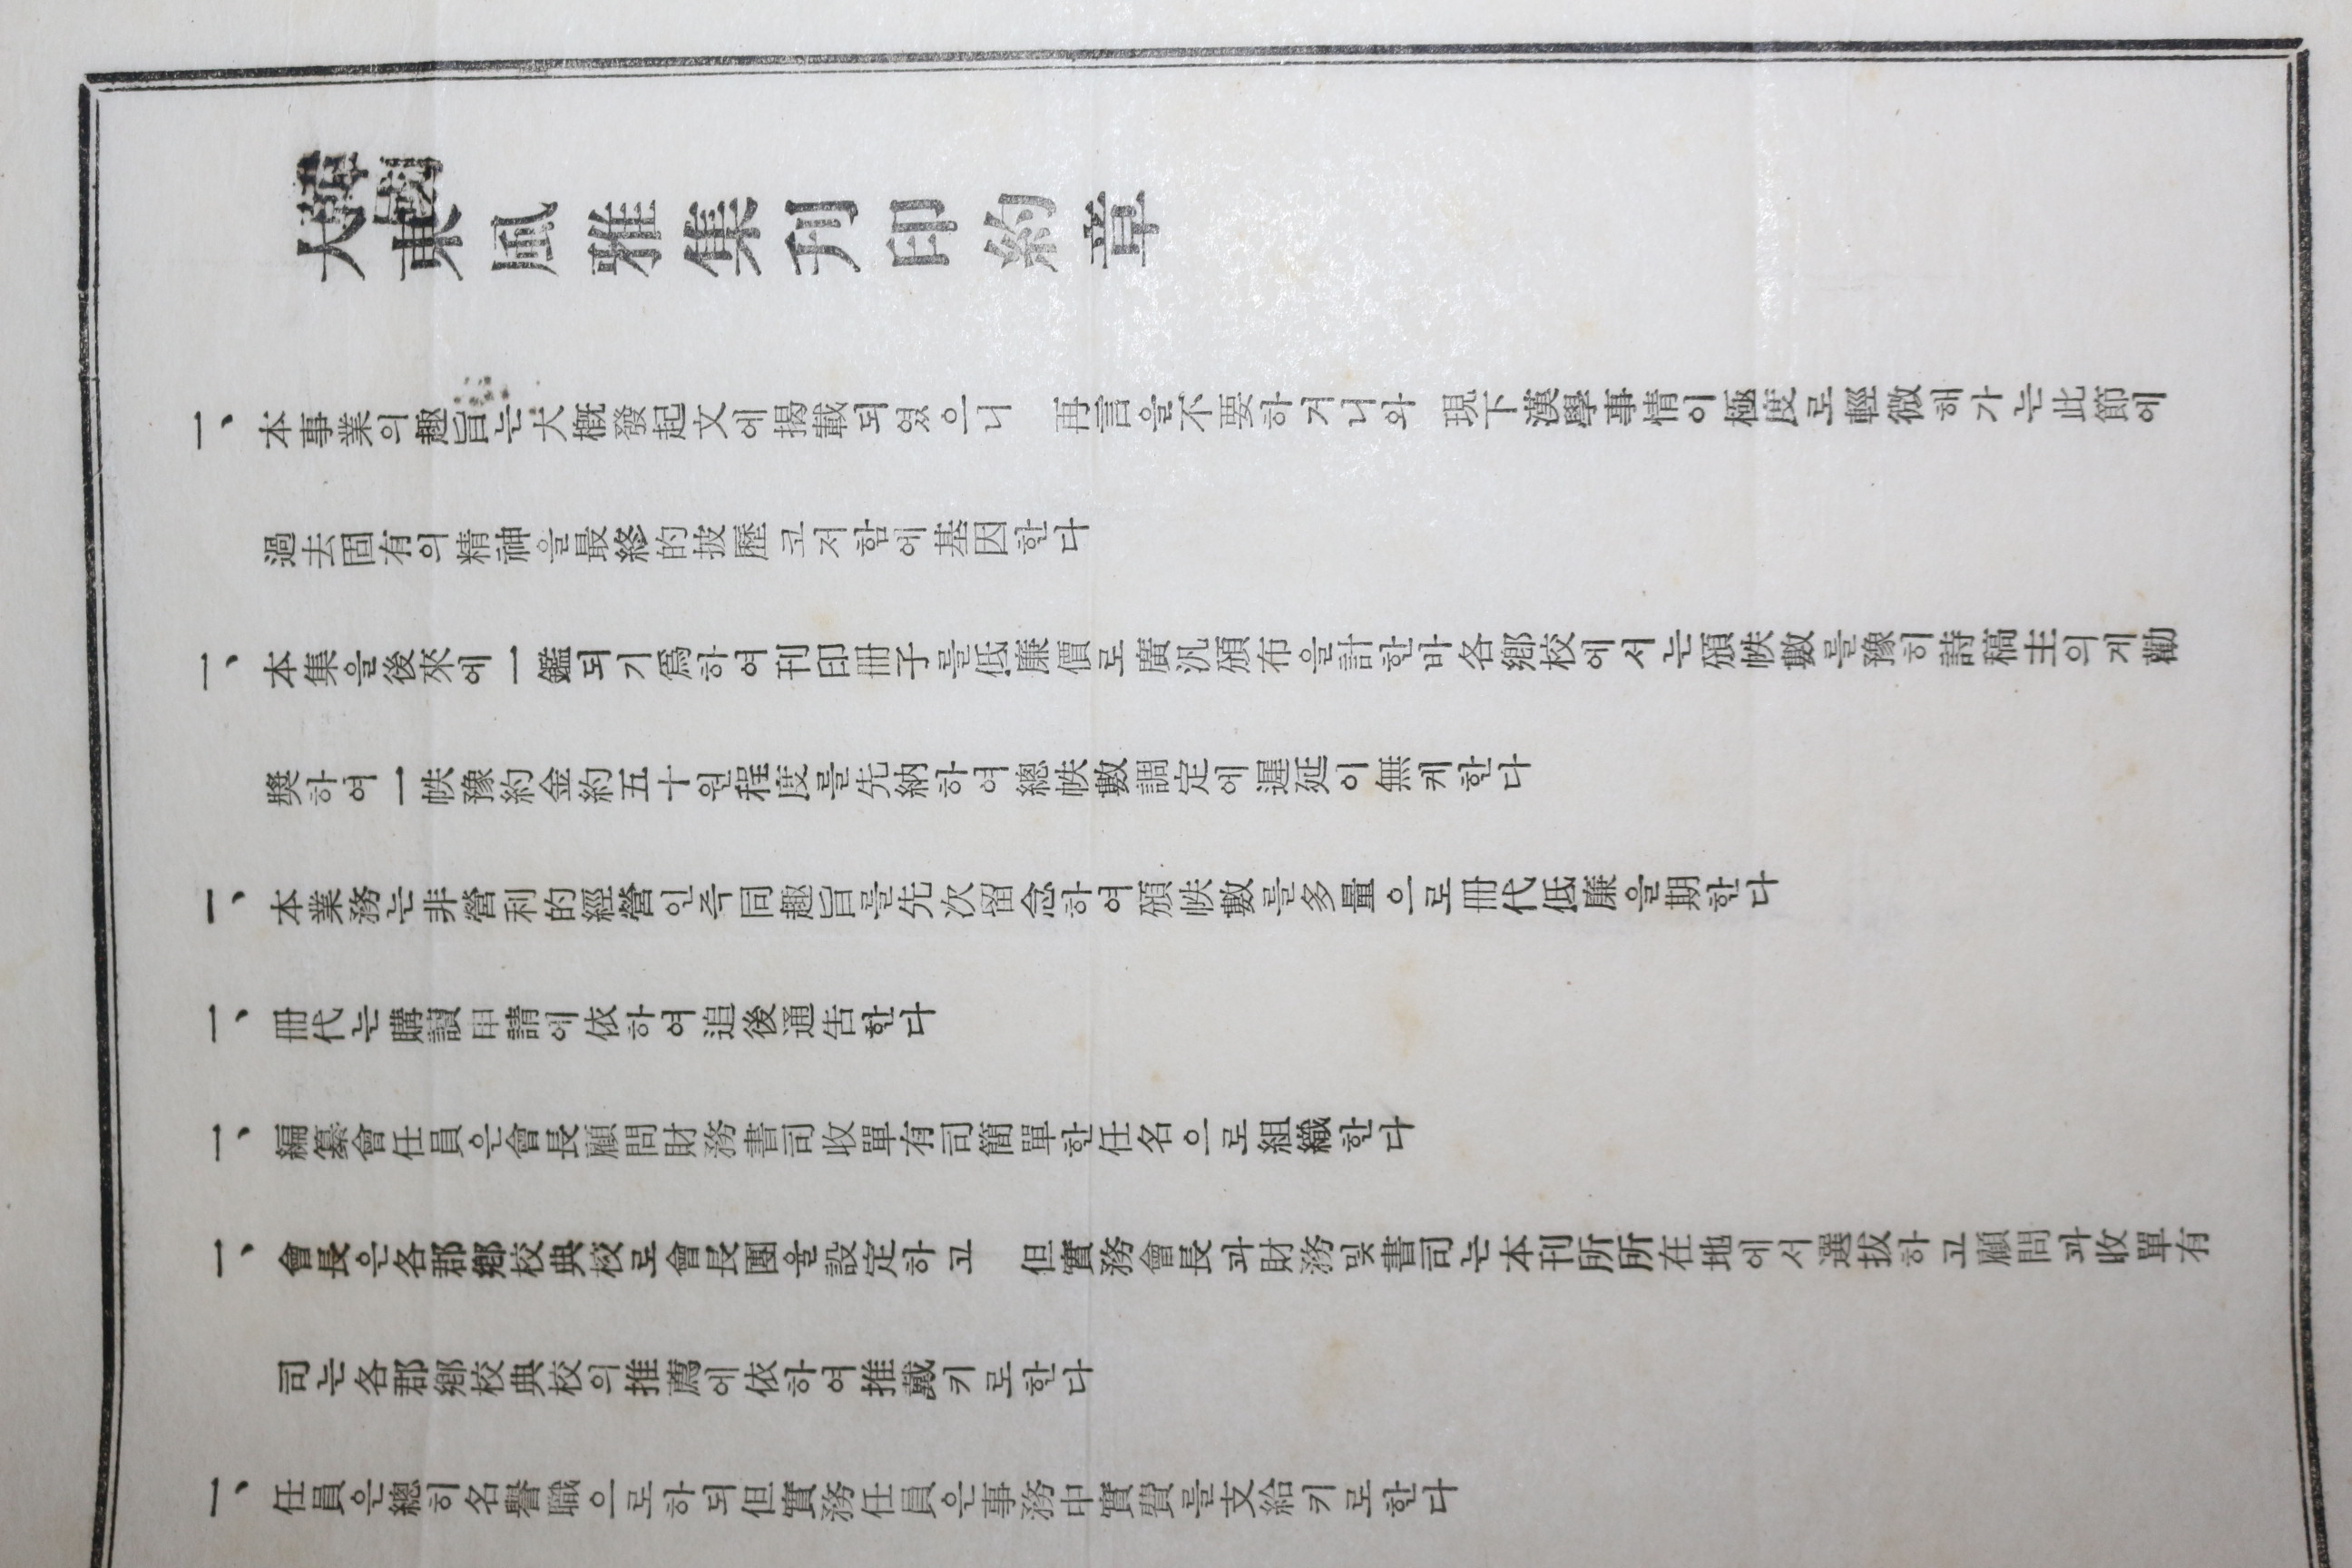 大東風雅集刊印約章
韓國
一、本事業의趣旨는大槪發起文에揭載되였으니 再言을不要하거니와 現下漢學事情이極度로輕微해가는此節에
過去固有의精神을最終的披歷코저함에基因한다
一、本集을後來에一鑑되기爲하여刊印冊子를低廉價로廣汎頒布을計한바各鄕校에서는頒帙數를豫히詩稿主의게勸
奬하여一帙豫約金約五十원程度를先納하여總帙數調定에遲延이無케한다
一、本業務는非營利的經營인즉同趣旨를先次留念하여頒帙數를多量으로冊代低廉을期한다
一、冊代는購讀申請에依하여追後通告한다
一、編纂會任員은會長顧問財務書司收單有司簡單한任名으로組織한다
一、會長은各郡鄕校典校로會長團을設定하고 但實務會長과財務및書司는本刊所所在地에서選拔하고顧問과收單有
司는各郡鄕校典校의推薦에依하여推戴키로한다
一、任員은總히名譽職으로하되但實務任員은事務中實費를支給키로한다